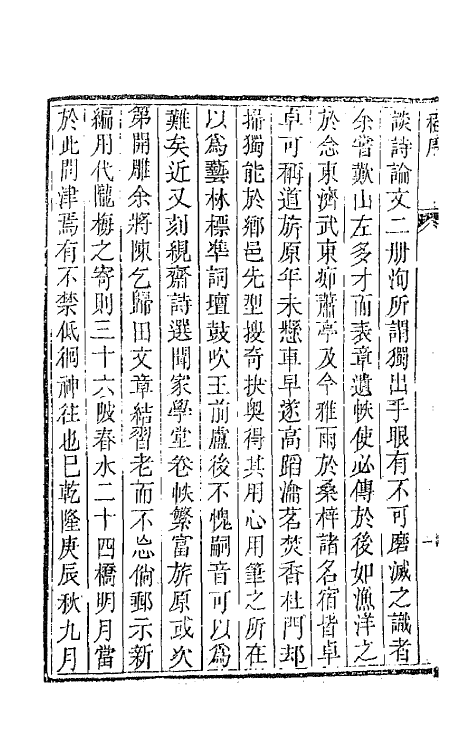 程序
一
談詩論文二册洵所謂獨出手眼有不可磨滅之識者
余嘗歎山左多才而表章遺帙使必傳於後如漁洋之
於念東濟武東痴蕭亭及今雅雨於桑梓諸名宿皆卓
卓可稱道旂原年未懸車早遂高蹈瀹茗焚香杜門却
掃獨能於鄉邑先型搜奇抉奥得其用心用筆之所在
以爲藝林標凖詞壇鼓吹王前盧後不愧嗣音可以爲
難矣近又刻覞齋詩選聞家學堂卷帙繁富旂原或次
第開雕余將陳乞歸田文章結習老而不忘倘郵示新
編用代隴梅之寄則三十六陂春水二十四橋明月當
於此問津焉有不禁低徊神往也已乾隆庚辰秋九月